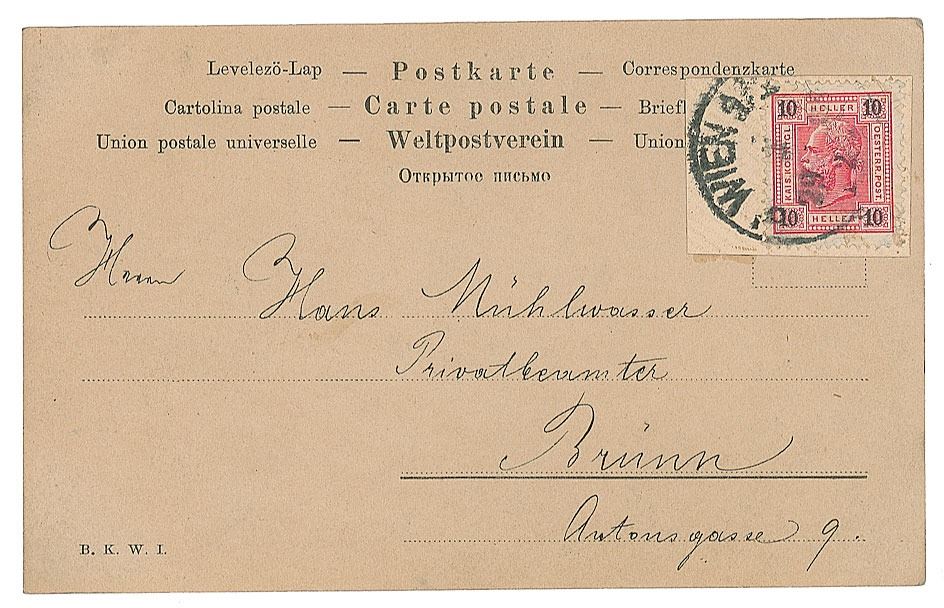 Levelező-Lap — Postkarte — Correspondenzkarte
Cartolina postale — Carte postale — Briefl
Union postale universelle — Weltpostverein — Union
Открытое письмо
WIEN
10 HELLER 10
KAIS. KOENIGL.
OESTERR. POST.
10 HELLER 10
Herrn
Hans Mühlwasser
Privatbeamter
Brünn
Antonsgasse 9.
B. K. W. I.